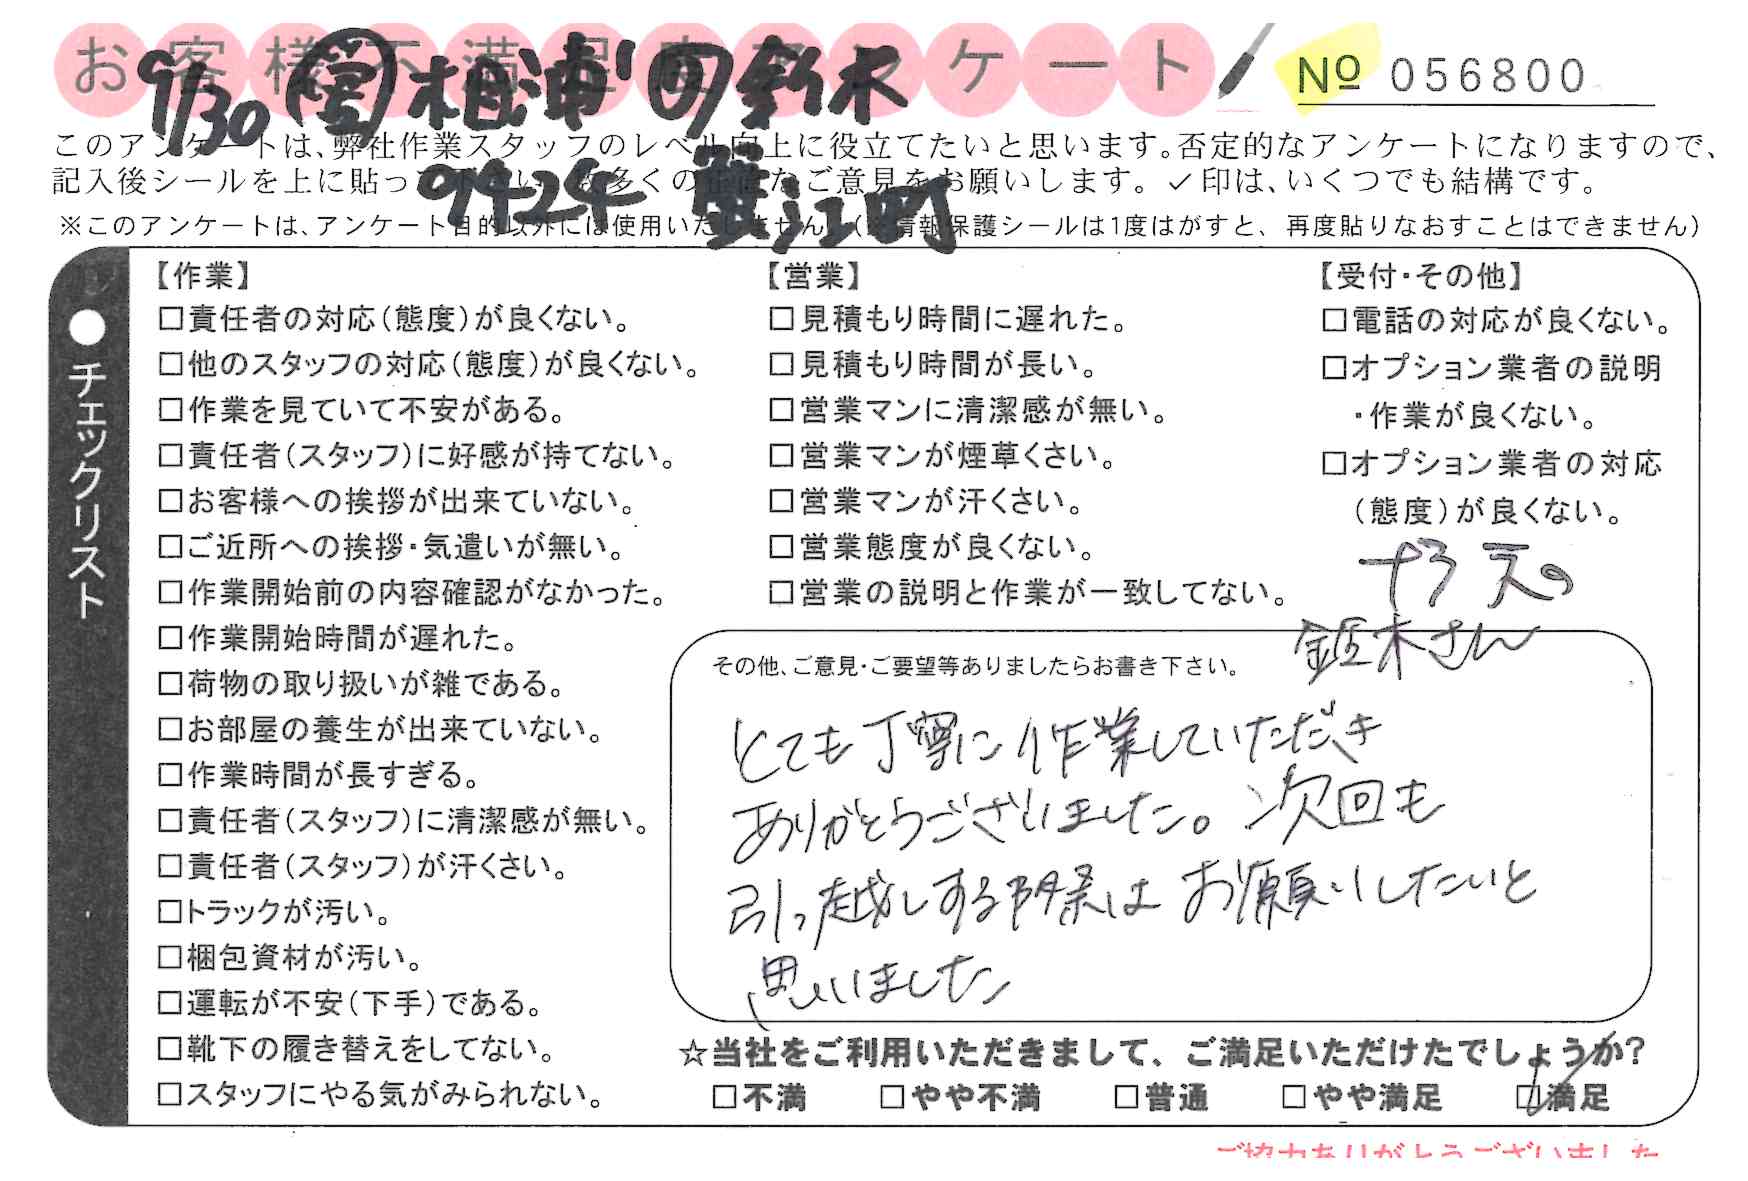 お客様不満足度アンケート
№ 056800
9/30 (営)相浦 回鈴木
9424 蟹江町
このアンケートは、弊社作業スタッフのレベル向上に役立てたいと思います。否定的なアンケートになりますので、
記入後シールを上に貼って下さい。数多くの正直なご意見をお願いします。✓印は、いくつでも結構です。
※このアンケートは、アンケート目的以外には使用いたしません。(※情報保護シールは1度はがすと、再度貼りなおすことはできません)
●チェックリスト
【作業】
□責任者の対応(態度)が良くない。
□他のスタッフの対応(態度)が良くない。
□作業を見ていて不安がある。
□責任者(スタッフ)に好感が持てない。
□お客様への挨拶が出来ていない。
□ご近所への挨拶・気遣いが無い。
□作業開始前の内容確認がなかった。
□作業開始時間が遅れた。
□荷物の取り扱いが雑である。
□お部屋の養生が出来ていない。
□作業時間が長すぎる。
□責任者(スタッフ)に清潔感が無い。
□責任者(スタッフ)が汗くさい。
□トラックが汚い。
□梱包資材が汚い。
□運転が不安(下手)である。
□靴下の履き替えをしてない。
□スタッフにやる気がみられない。
【営業】
□見積もり時間に遅れた。
□見積もり時間が長い。
□営業マンに清潔感が無い。
□営業マンが煙草くさい。
□営業マンが汗くさい。
□営業態度が良くない。
□営業の説明と作業が一致してない。
【受付・その他】
□電話の対応が良くない。
□オプション業者の説明
・作業が良くない。
□オプション業者の対応
(態度)が良くない。
鈴木さん
その他、ご意見・ご要望等ありましたらお書き下さい。
とても丁寧に作業していただき
ありがとうございました。次回も
引っ越しする際はお願いしたいと
思いました
☆当社をご利用いただきまして、ご満足いただけたでしょうか?
□不満 □やや不満 □普通 □やや満足 ☑満足
ご協力ありがとうございました